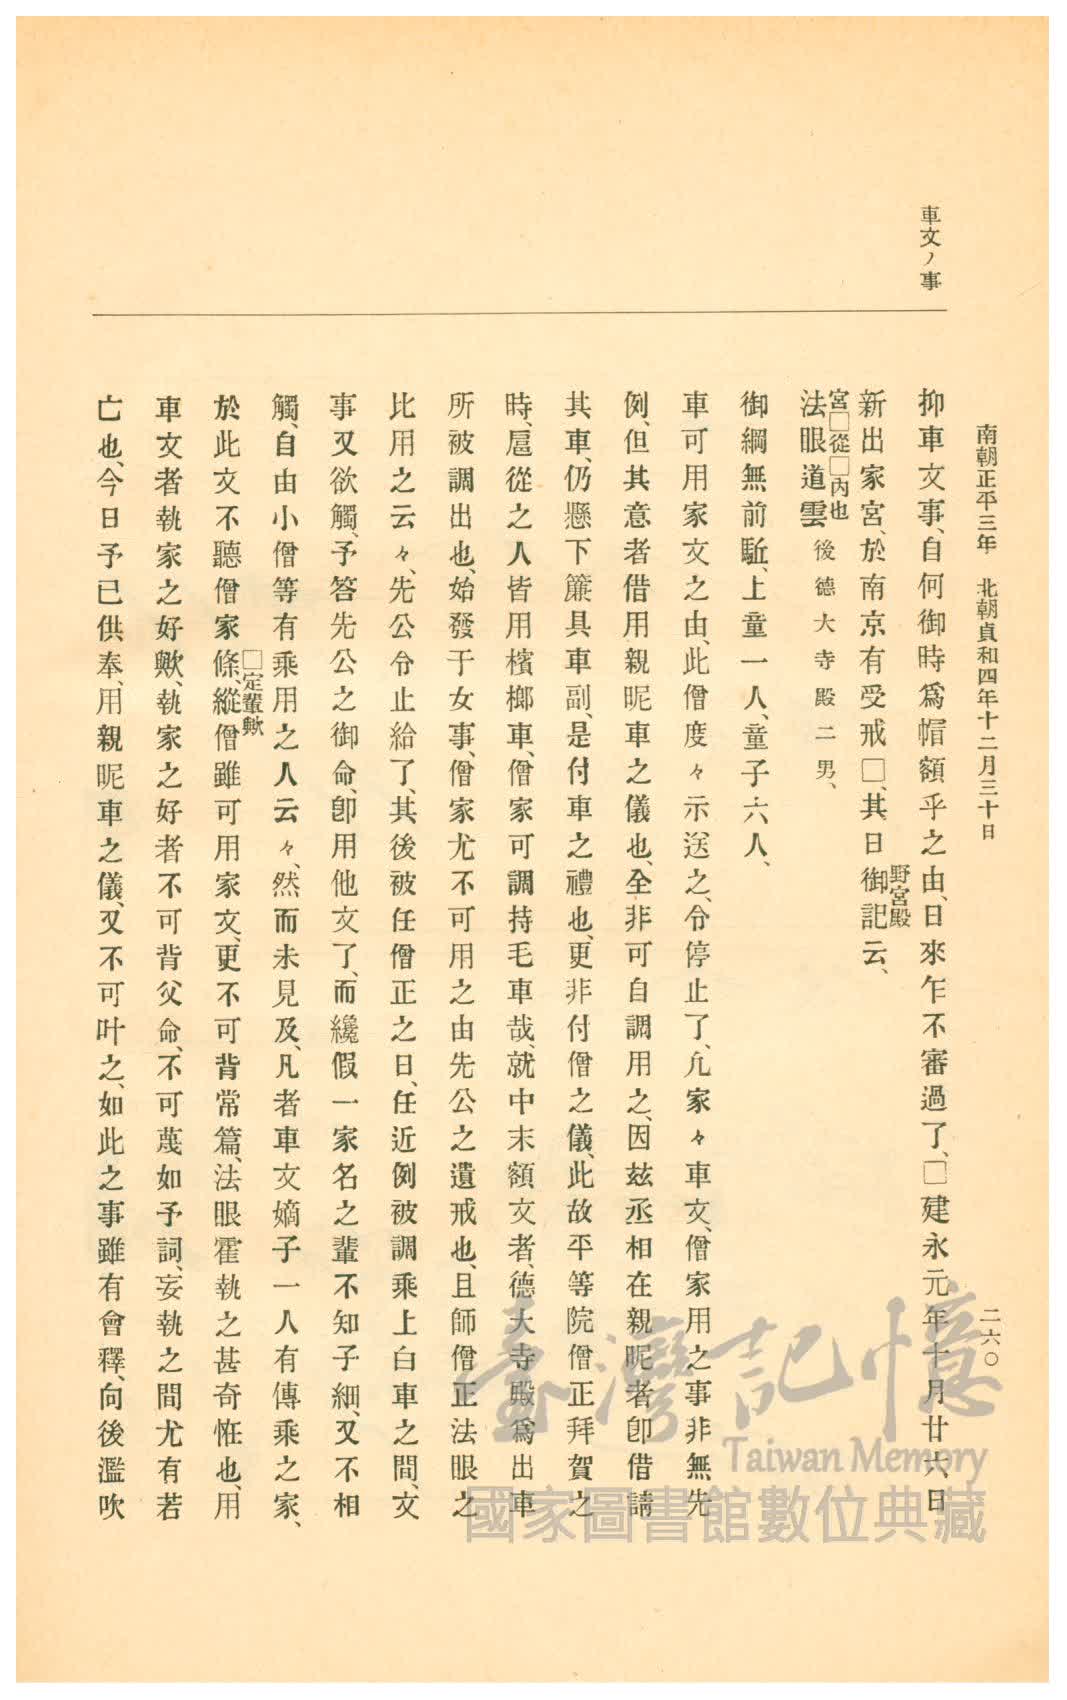 南朝正平三年　北朝貞和四年十二月三十日
二六〇
車文ノ事
抑車文事、自何御時爲帽額乎之由、日來乍不審過了、□建永元年十月廿六日
新出家宮、於南京有受戒□、其日御記云、
野宮殿
宮□從□內也
法眼道雲後德大寺殿二男、
御綱無前駈、上童一人、童子六人、
車可用家文之由、此僧度々示送之、令停止了、凢家々車文、僧家用之事非無先
例、但其意者借用親昵車之儀也、全非可自調用之、因玆丞相在親昵者卽借請
其車、仍懸下簾具車副、是付車之禮也、更非付僧之儀、此故平等院僧正拜賀之
時、扈從之人皆用檳榔車、僧家可調持毛車哉、就中末額文者、德大寺殿爲出車
所被調出也、始發于女事、僧家尤不可用之由先公之遺戒也、且師僧正法眼之
比用之云々、先公令止給了、其後被任僧正之日、任近例被調乘上白車之間、文
事又欲觸、予答先公之御命、卽用他文了、而纔假一家名之輩不知子細、又不相
觸、自由小僧等有乘用之人云々、然而未見及、凡者車文嫡子一人有傳乘之家、
□定輩歟
於此文不聽僧家條、縱僧雖可用家文、更不可背常篇、法眼霍執之甚奇恠也、用
車文者執家之好歟、執家之好者不可背父命、不可蔑如予詞、妄執之間尤有若
亡也、今日予已供奉、用親昵車之儀、又不可叶之、如此之事雖有會釋、向後濫吹
臺灣記憶
Taiwan Memory
國家圖書館數位典藏